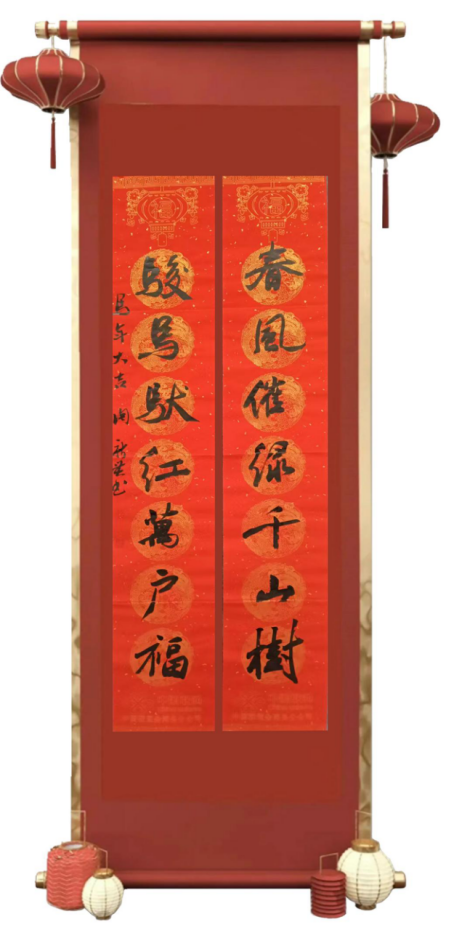 春風催緑千山樹
駿馬馱紅萬户福
馬年大吉